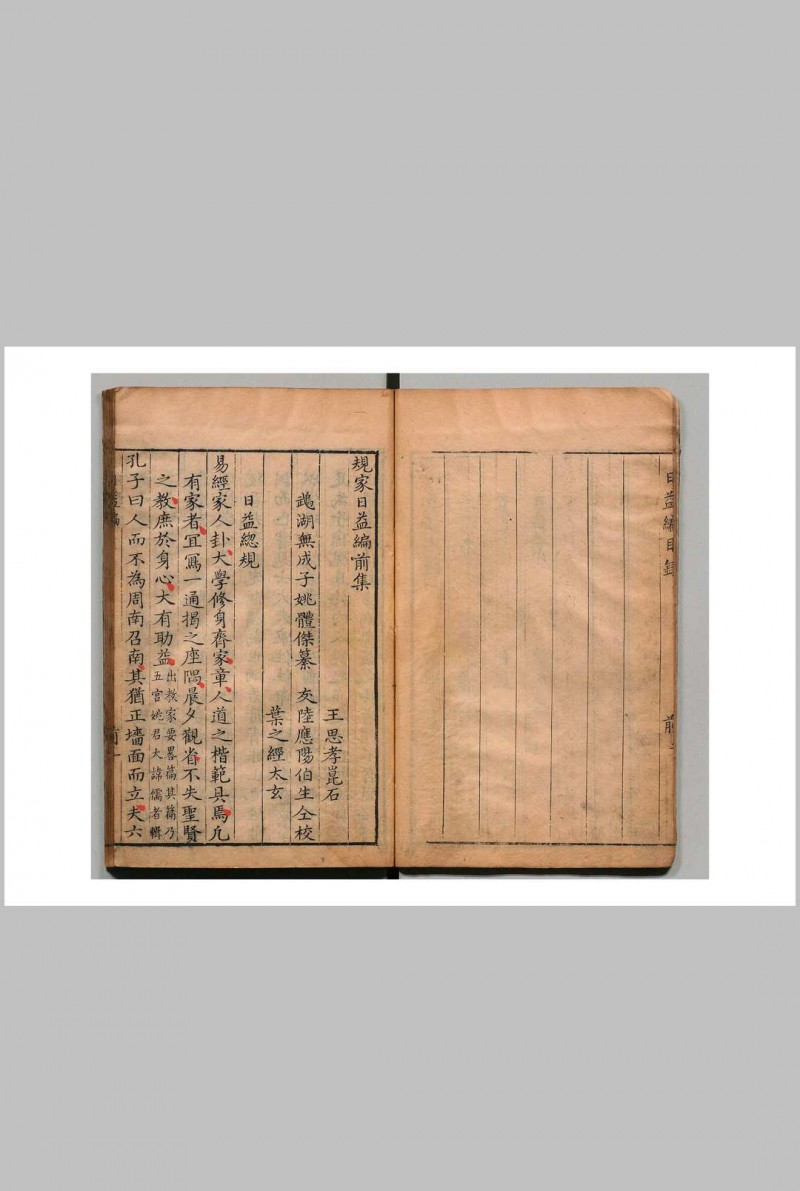 日益編目錄
前
規家日益編前集
王思孝崑石
鵡湖無成子姚體傑纂 友陸應陽伯生仝校
葉之經太玄
日益緫規
易經家人卦大學修身齊家章人道之楷範具焉凡
有家者宜寫一通揭之座隅晨夕觀省不失聖賢
之教庶於身心大有助益
出教家要畧篇其篇乃
五官姚君大諱儒者輯
孔子曰人而不為周南召南其猶正墻面而立夫六